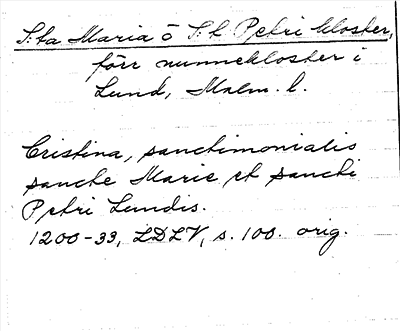 S:ta Maria o S:t Petri kloster,
förr nunnekloster i
Lund, Malm. l.
Cristina, sanctimonialis
sancte Marie et sancti
Petri Lundis.
1200-33, LDLV, s. 100. orig.